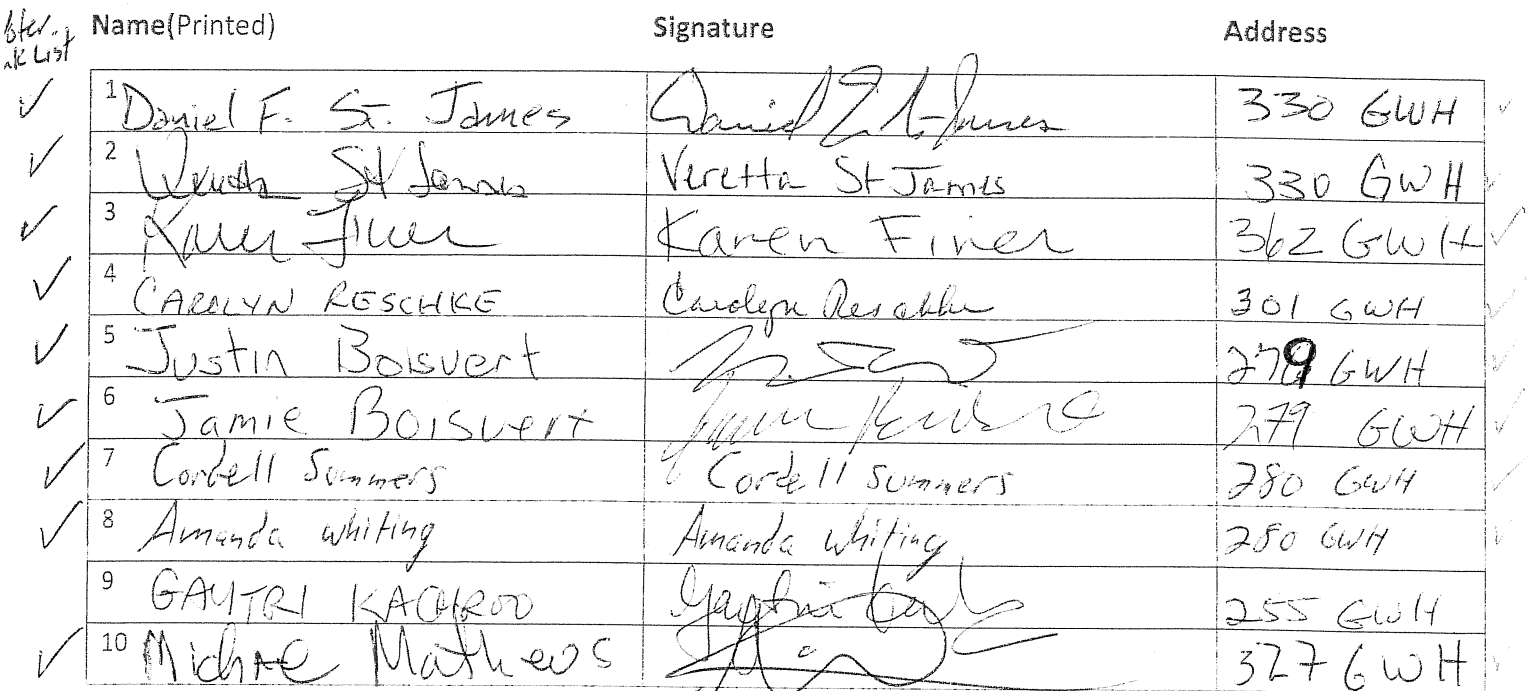 Name(Printed) Signature Address
List
1 Daniel F. St. James 330 GWH
2 Veretta St James Veretta St James 330 GWH
3 Karen Finer Karen Finer 362 GWH
4 CAROLYN RESCHKE Carolyn Reschke 301 GWH
5 Justin Boisvert 279 GWH
6 Jamie Boisvert 279 GWH
7 Cordell Summers Cordell Summers 280 GWH
8 Amanda Whiting Amanda Whiting 280 GWH
9 GAYTRI KACHROO 255 GWH
10 Mathews 327 GWH